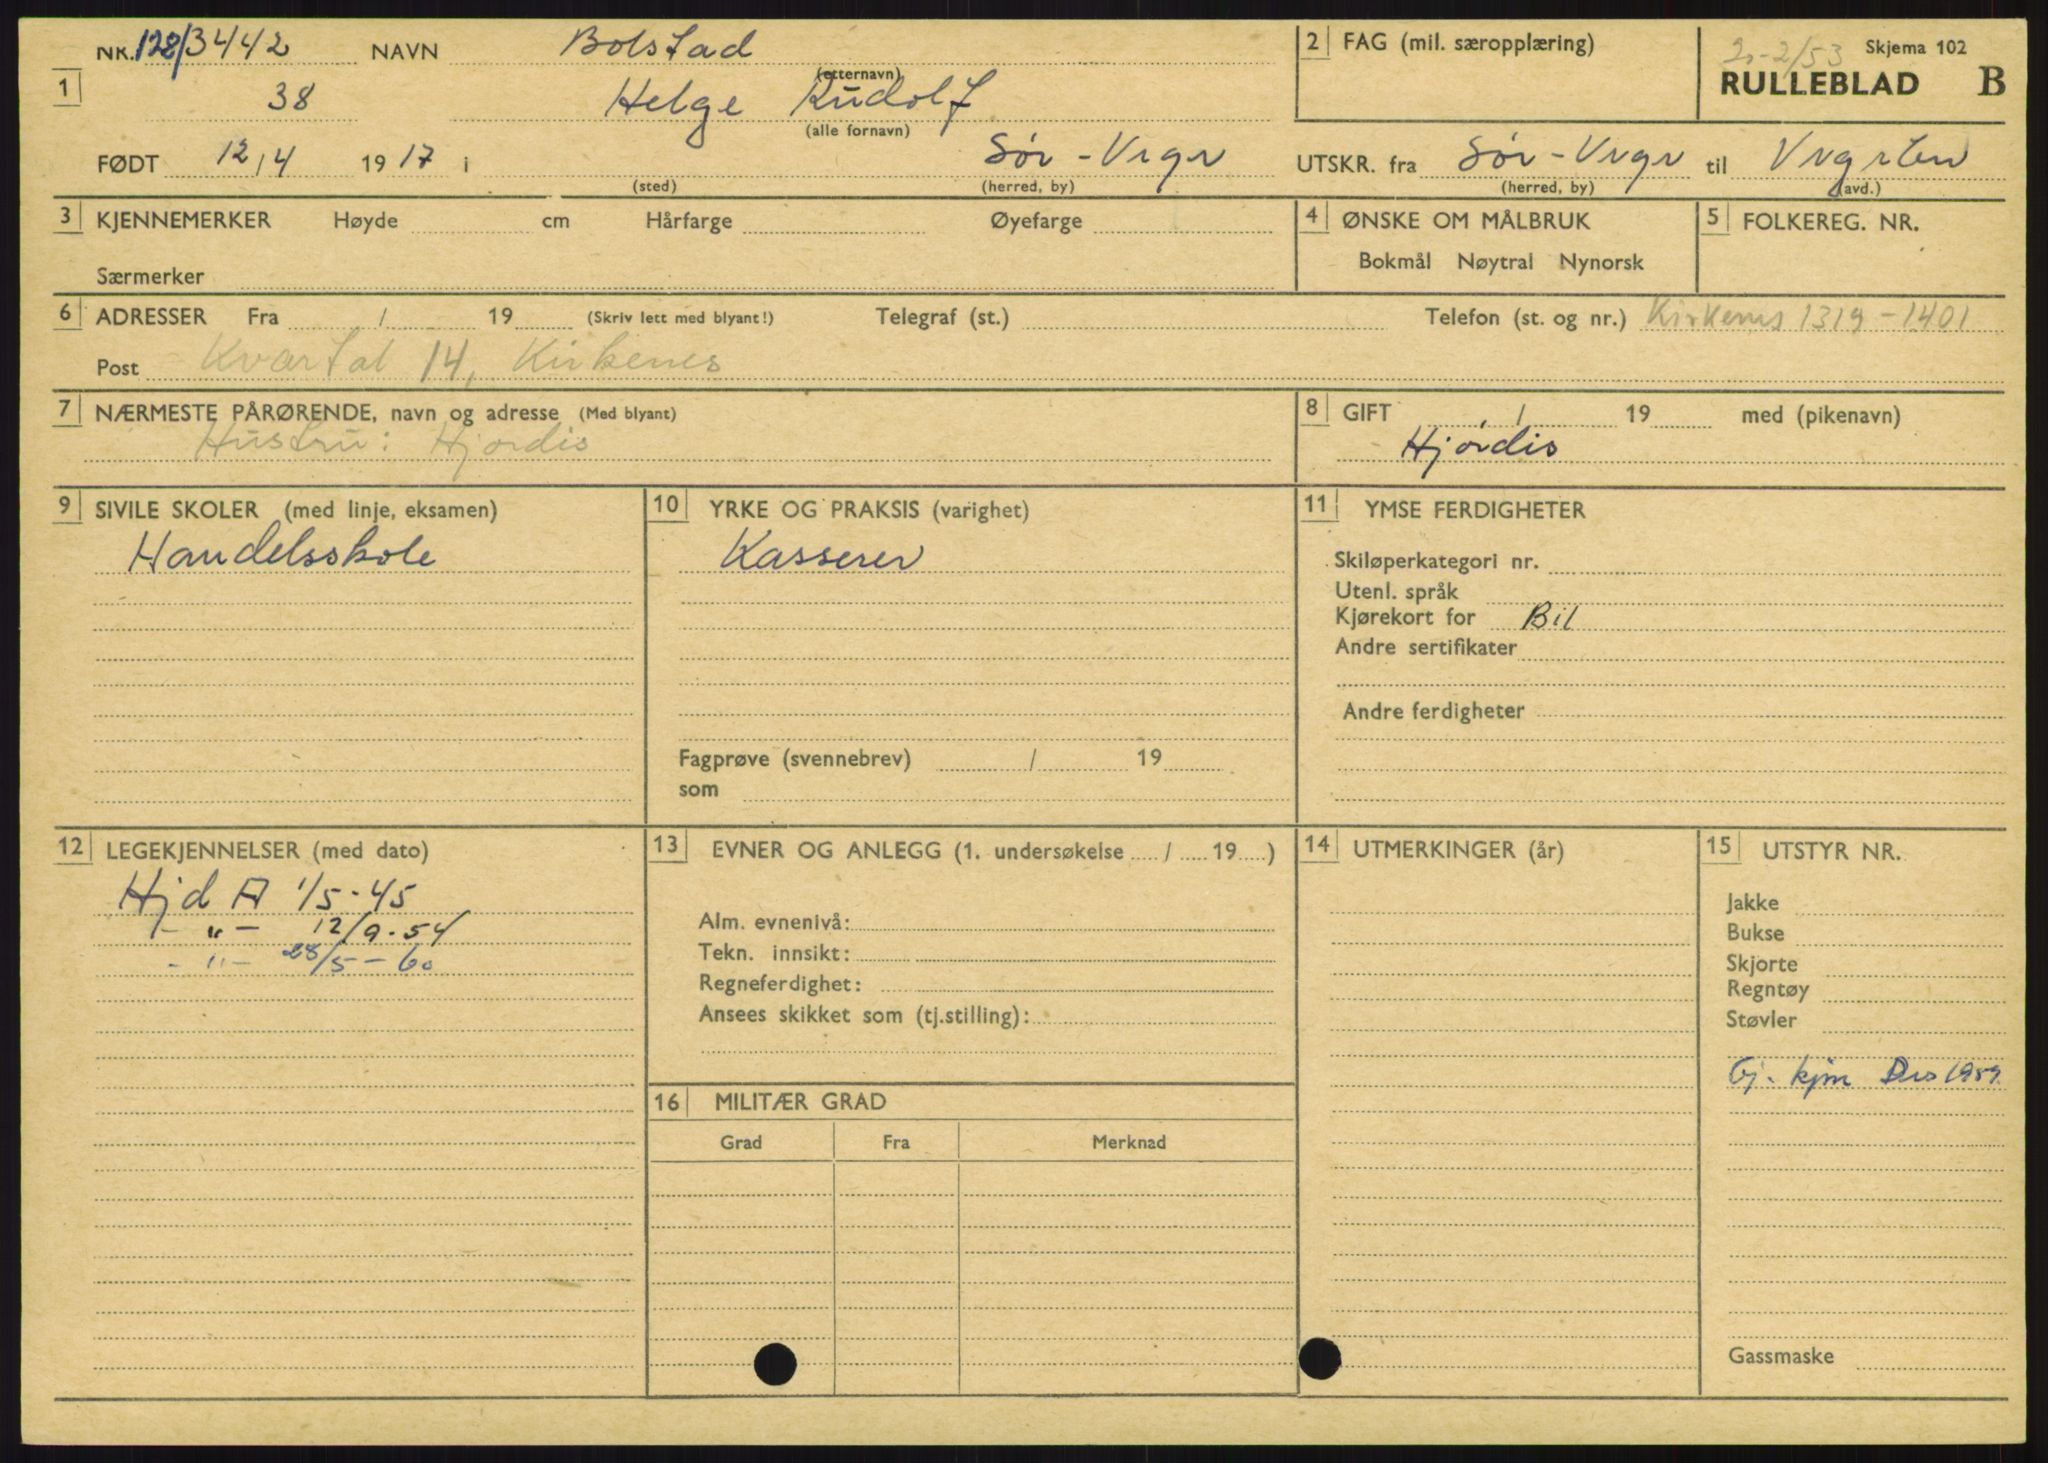 NR. 128/3442 NAVN Bolstad (etternavn)
1 38 Helge Rudolf (alle fornavn)
FØDT 12/4 1917 i (sted) Sør-Vrgr (herred, by)
2 FAG (mil. særopplæring)
20-2/53 Skjema 102
RULLEBLAD B
UTSKR. fra Sør-Vrgr (herred, by) til Vrgrbn (avd.)
3 KJENNEMERKER Høyde cm Hårfarge Øyefarge
Særmerker
4 ØNSKE OM MÅLBRUK
Bokmål Nøytral Nynorsk
5 FOLKEREG. NR.
6 ADRESSER Fra / 19 (Skriv lett med blyant!) Telegraf (st.) Telefon (st. og nr.) Kirkenes 1319-1401
Post Kvartal 14, Kirkenes
7 NÆRMESTE PÅRØRENDE, navn og adresse (Med blyant)
Hustru: Hjørdis
8 GIFT / 19 med (pikenavn)
Hjørdis
9 SIVILE SKOLER (med linje, eksamen)
Handelsskole
10 YRKE OG PRAKSIS (varighet)
Kasserer
Fagprøve (svennebrev) / 19
som
11 YMSE FERDIGHETER
Skiløperkategori nr.
Utenl. språk
Kjørekort for Bil
Andre sertifikater
Andre ferdigheter
12 LEGEKJENNELSER (med dato)
Hjd A 1/5-45
- " - 12/9-54
- " - 28/5-60
13 EVNER OG ANLEGG (1. undersøkelse / 19 )
Alm. evnenivå:
Tekn. innsikt:
Regneferdighet:
Ansees skikket som (tj.stilling):
16 MILITÆR GRAD
Grad Fra Merknad
14 UTMERKINGER (år)
15 UTSTYR NR.
Jakke
Bukse
Skjorte
Regntøy
Støvler
Gj. kjm Des 1959
Gassmaske